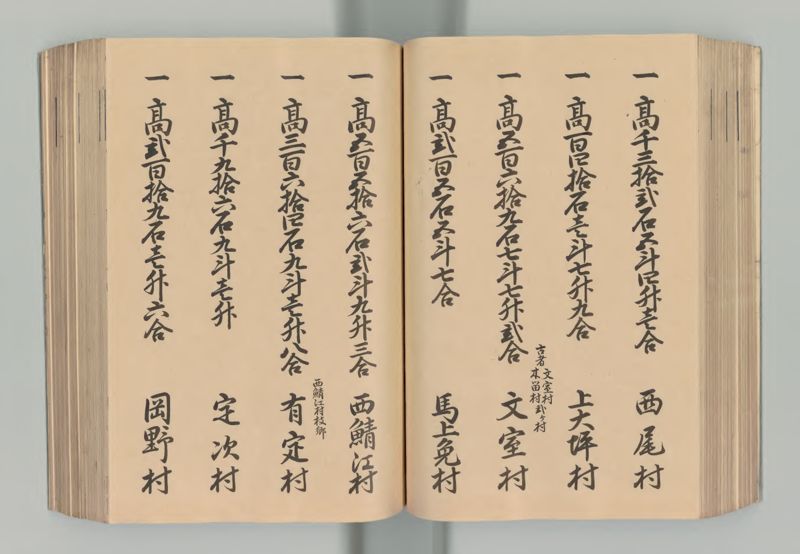 一 高千三拾弐石五斗四升壱合 西尾村
一 高百四拾石壱斗七升九合 上大坪村
古者 文室村 本留村 弐ヶ村
一 高五百六拾九石七斗七升弐合 文室村
一 高弐百五石五斗七合 馬上免村
一 高五百五拾六石弐斗九升三合 西鯖江村
西鯖江村枝郷
一 高三百六拾四石九斗壱升八合 有定村
一 高千九拾六石九斗壱升 定次村
一 高弐百拾九石壱升六合 岡野村